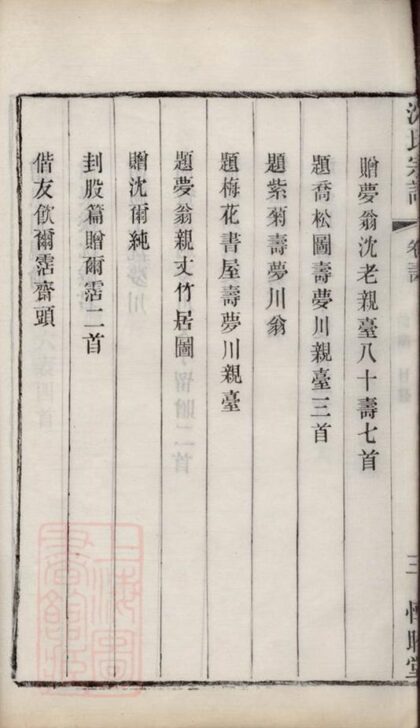 沈氏宗譜
三
贈夢翁沈老親臺八十壽七首
題喬松圖壽夢川親臺三首
題紫菊壽夢川翁
題梅花書屋壽夢川親臺
題夢翁親丈竹居圖
贈沈爾純
刲股篇贈爾霑二首
偕友飲爾霑齋頭
上海圖書館藏